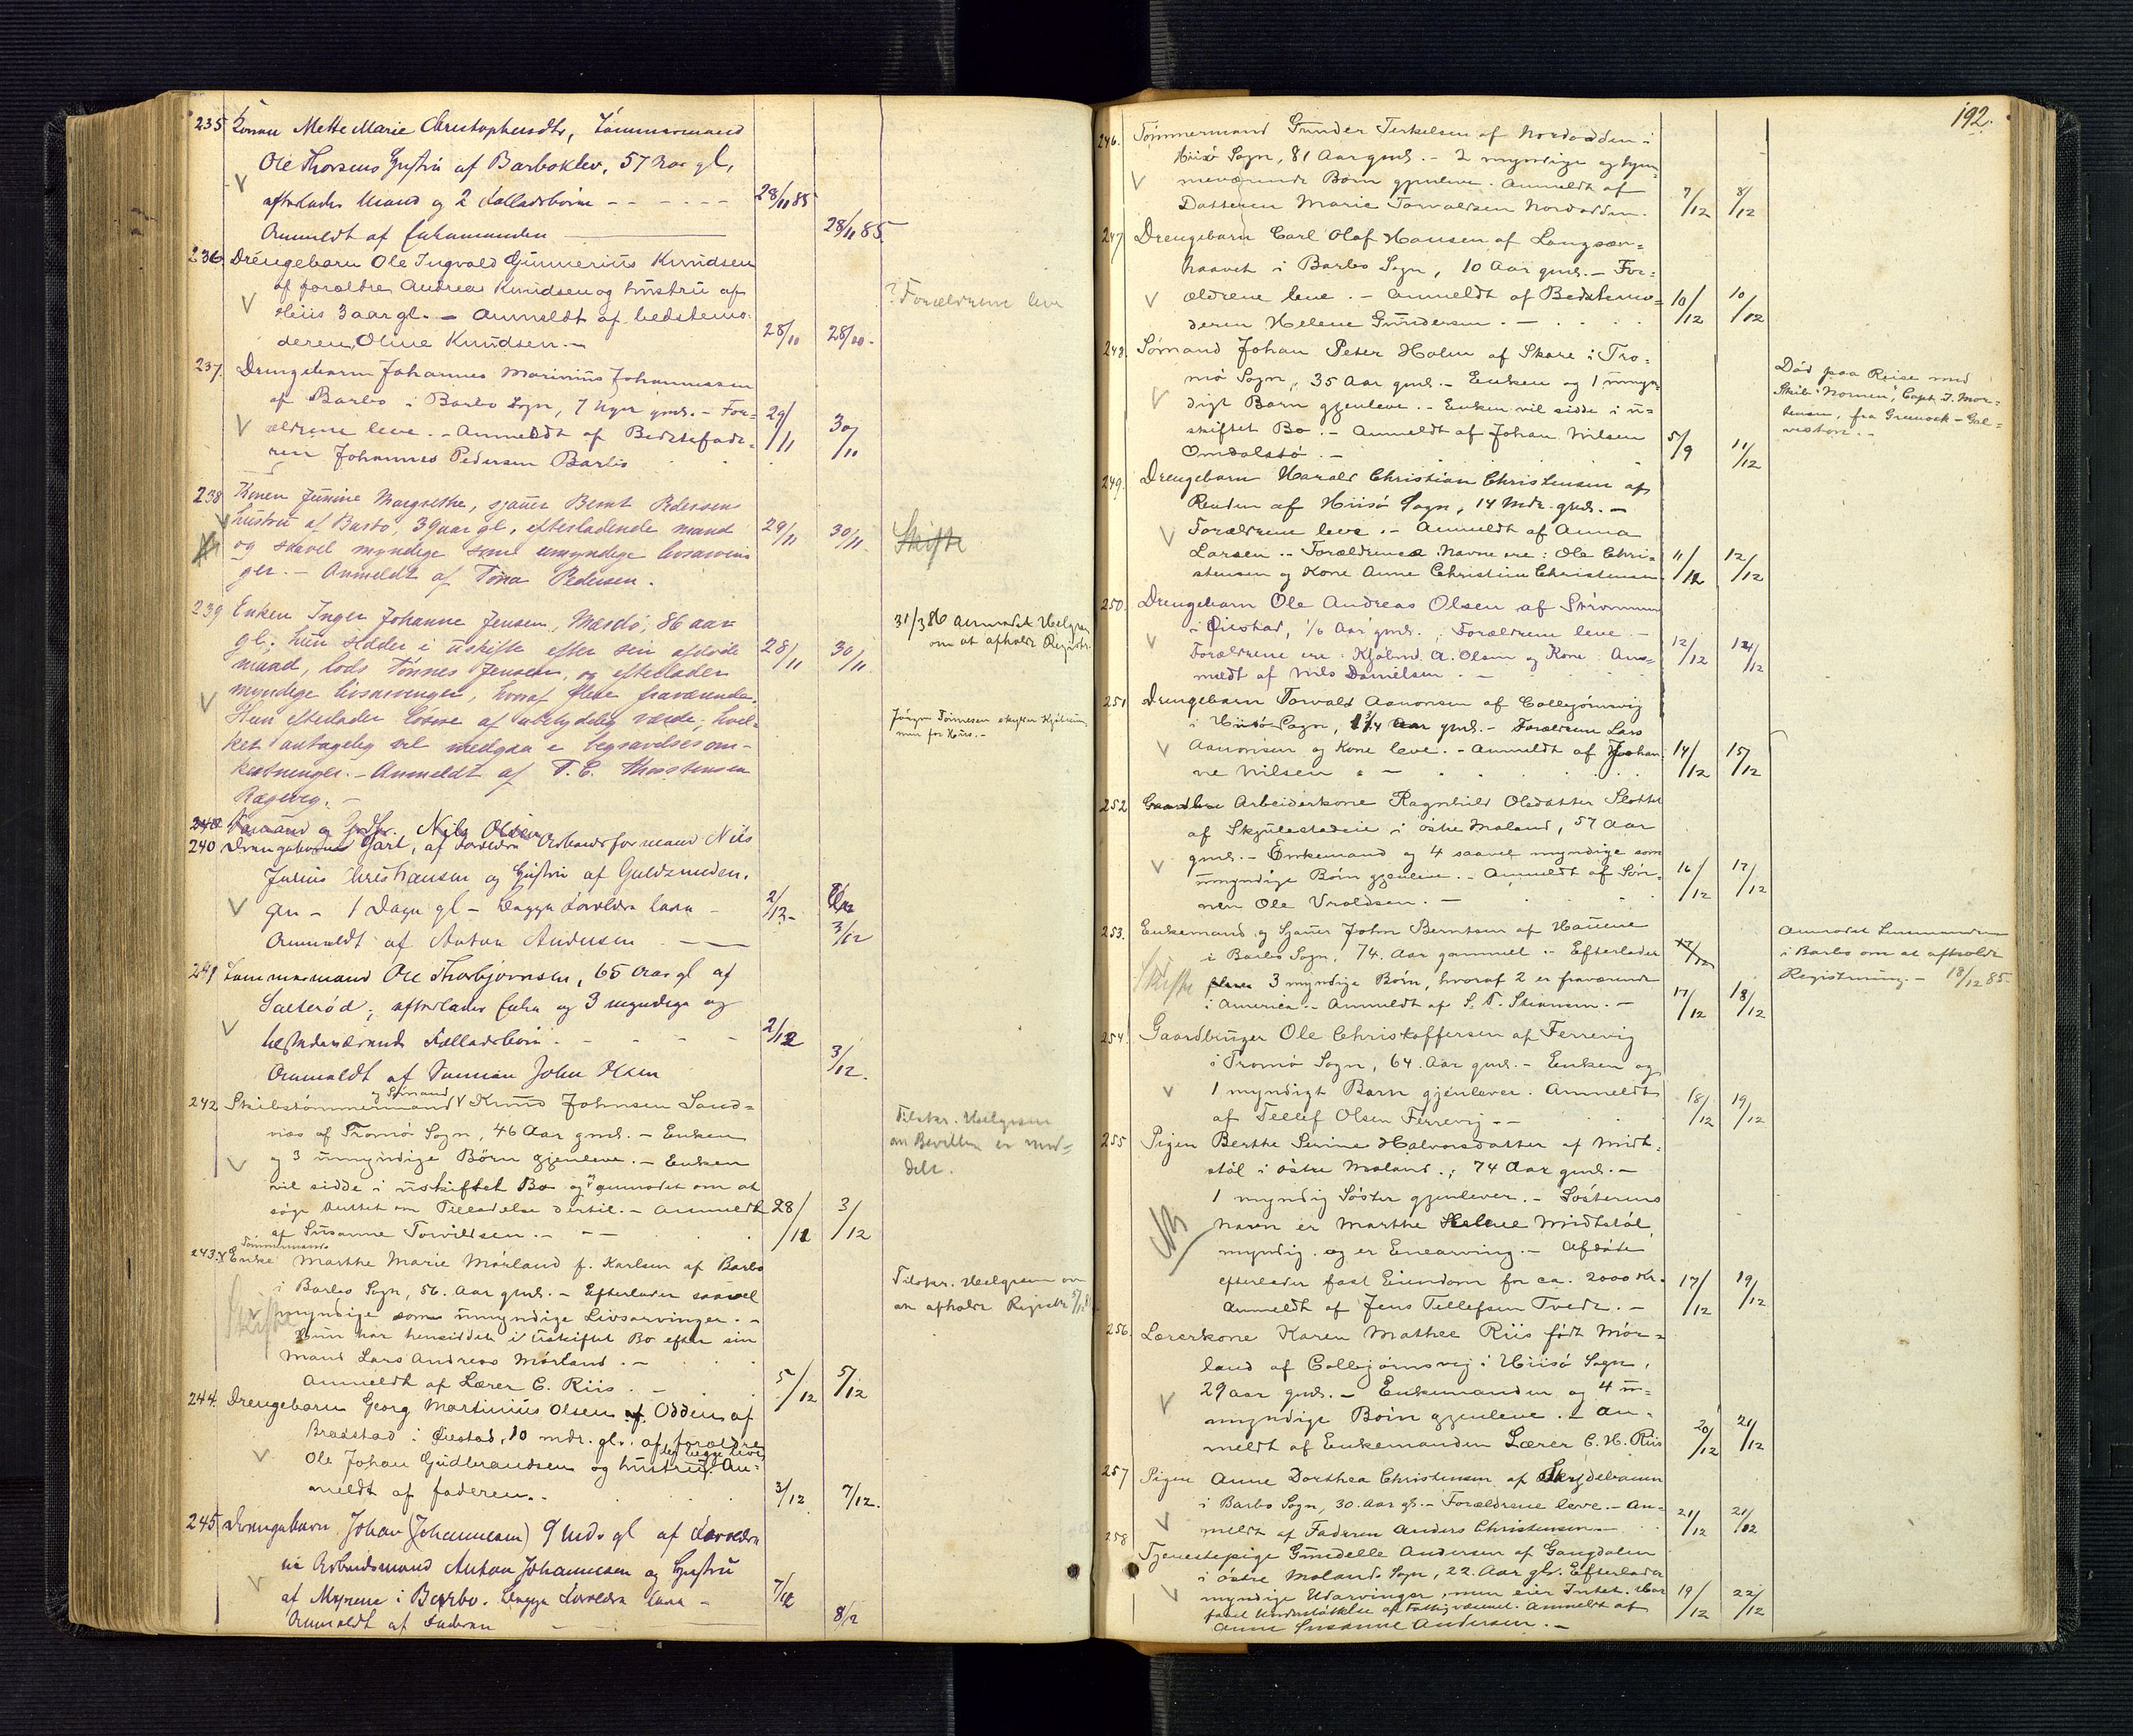 235 Konen Mette Marie Christophersdtr, Tømmermand
Ole Thorsens Hustru af Barboklev, 57 Aar gl,
efterlader Mand og 2 Fællesbørn 28/11 85
Anmeldt af Enkemanden 28/11 85
236 Drengebarn Ole Ingvald Gunnerius Knudsen
af forældre Andreas Knudsen og hustru af
? Forældrene leve
Hiis 3 aar gl. – Anmeldt af bedstemo-
deren, Oline Knudsen. – 28/11 28/11.
237. Drengebarn Johannes Marinius Johannessen
af Barbo i Barbo Sogn, 7 Uger gml. – For-
ældrene leve. – Anmeldt af Bedstefade- 29/11 30/11
ren Johannes Pedersen Barbo
238 Konen Junine Margrethe, sjauer Bernt Pedersens
hustru af Barbo, 39 aar gl, efterladende mand 29/11 30/11. Skifte
og saavel myndige som umyndige livsarvin-
ger. – Anmeldt af Tona Pedersen.
239 Enken Inger Johanne Jensen, Mærdø, 86 aar
31/3 86 anmodet Helgesen
om at afholde Registr.
gl; hun sidder i uskifte efter sin afdøde 28/11 30/11
mand, lods Tønnes Jensen, og efterlader
myndige livsarvinger, hvoraf flere fraværende.
Hun efterlader løsøre af ubetydelig værdi, hvil-
Jørgen Tønnesen
ket antagelig vil medgaa i begravelsesom-
kostninger. – Anmeldt af T. C. Thorstensen
Rægevig. –
240 Drengebarnet Carl, af Forældre Arbeidsformand Nils
Julius Christiansen og Hustru af Guldsmeden.
gen – 1 Dage gl – begge Forældre leve – 2/12 –
Anmeldt af Anton Andersen 3/12
241 Tømmermand Ole Thorbjørnsen, 65 Aar gl af
Salterød; efterlader Enke og 3 myndige og
tilstedeværende Fællesbørn. 2/12
Anmeldt af Sønnen John Olsen 3/12.
og Sømand
242 Skibstømmermand Knud Johnsen Sand-
næs af Tromø Sogn, 46 Aar gml. – Enken
Tilskr. Helgesen
om Bevilling er med-
delt.
og 3 umyndige Børn gjenleve. – Enken
vil sidde i uskiftet Bo og er anmodet om at
søge Amtet om Tilladelse dertil. – Anmeldt 28/11 3/12
af Susanne Torvildsen. –
Tømmermands
243. Enke Marthe Marie Mørland f. Karlsen af Barbo
i Barbo Sogn, 56. Aar gml. – Efterlader saavel
Tilskr. Helgesen om
at afholde Registr.
Skifte
myndige som umyndige Livsarvinger. –
Hun har hensiddet i Uskiftet Bo efter sin
Mand Lars Andreas Mørland. –
Anmeldt af Lærer C. Riis. 5/12 5/12
244. Drengebarn Georg Martinius Olsen af Odden af
Bradstad i Øiestad, 10 mdr. gl. af forældre
Ole Johan Gudbrandsen og hustru, An-
der begge leve
meldt af faderen. 3/12 7/12.
245 Drengebarn Johan (Johannesen) 9 Mdr gl af Forældre
ne Arbeidsmand Anton Johannesen og Hustru
af Myrene i Barbo. begge Forældre leve – 7/12
Anmeldt af Faderen 8/12
192.
246. Tømmermand Gunder Terkelsen af Nordodden i
Hiisø Sogn, 81 Aar gml. – 2 myndige og hjem-
meværende Børn gjenleve. Anmeldt af
Datteren Marie Torvaldsen Nordodden. 7/12 8/12
247 Drengebarn Carl Olaf Hansen af Langsæv-
haavet i Barbo Sogn, 10 Aar gml. – For-
ældrene leve. – Anmeldt af Bedstemo- 10/12 10/12
deren Helene Gundersen. –
248. Sømand Johan Peter Holm af Skare i Tro-
mø Sogn, 35 Aar gml. – Enken og 1 umyn-
Død paa Reise med
Skib "Nornen", Capt. J. Mor-
tensen, fra Greenock – Gal-
veston. –
digt Barn gjenleve. – Enken vil sidde i u-
skiftet Bo. – Anmeldt af Johan Nilsen
Omdalstø. – 5/9 11/12
249. Drengebarn Harald Christian Christensen af
Renden af Hiisø Sogn, 14 Mdr. gml. –
Forældrene leve. – Anmeldt af Anna
Larsen. – Forældrenes Navne ere: Ole Chri- 11/12 12/12
stensen og Kone Anne Christine Christensen
250. Drengebarn Ole Andreas Olsen af Strømmen
i Øiestad, 1/6 Aar gml. Forældrene leve. –
Forældrene ere Kjøbmd. A. Olsen og Kone. An- 12/12 14/12
meldt af Nils Danielsen. –
251 Drengebarn Torvald Aanonsen af Colbjørnsvig
i Hiisø Sogn, 1 3/4 Aar gml. – Forældrene Lars
Aanonsen og Kone leve. – Anmeldt af Johan- 14/12 15/12
ne Nilsen
252 Arbeiderkone Ragnhild Olsdatter Slottet
af Skjulestadeie i østre Moland, 57 Aar
gml. – Enkemand og 4 saavel myndige som
umyndige Børn gjenleve. – Anmeldt af Søn- 16/12 17/12
nen Ole Vraldsen. –
253. Enkemand og Sjauer John Berntsen af Havene
i Barbo Sogn, 74. Aar gammel – Efterlader
Anmodet Lensmanden
i Barbo om at afholde
Registrering. – 18/12 85.
Skifte
3 myndige Børn, hvoraf 2 er fraværende
i America. – Anmeldt af S. T. Steensen. – 17/12 18/12
254. Gaardbruger Ole Christoffersen af Ferrevig
i Tromø Sogn, 64. Aar gml. – Enken og
1 myndigt Barn gjenlever. Anmeldt
af Tellef Olsen Ferrevig – 18/12 19/12
255 Pigen Berthe Serine Halvorsdatter af Midt-
støl i østre Moland., 74 Aar gml. –
1 myndig Søster gjenlever. – Søsterens
NB
navn er Marthe Helene Midtstøl
myndig. og er Enearving. – Afdøde
efterlader fast Eiendom for ca. 2000 Kr.
Anmeldt af Jens Tellefsen Tvede. – 17/12 19/12
256. Lærerkone Karen Mathee Riis født Mør-
land af Colbjørnsvig i Hiisø Sogn,
29 aar gml. – Enkemanden og 4 u-
myndige Børn gjenleve. – An-
meldt af Enkemanden Lærer C. H. Riis 20/12 21/12
257 Pigen Anne Dorthea Christensen af
i Barbo Sogn, 30. Aar gl. – Forældrene leve. – An-
meldt af Faderen Anders Christensen – 21/12 21/12
258 Tjenestepige Gundelle Andersen af Gangdalen
i østre Molands Sogn, 22. Aar gl. Efterlader
myndige Udarvinger, men eier Intet. Har 19/12 22/12
faaet Understøttelse af Fattigvæsenet. Anmeldt af
Anne Susanne Andersen. –